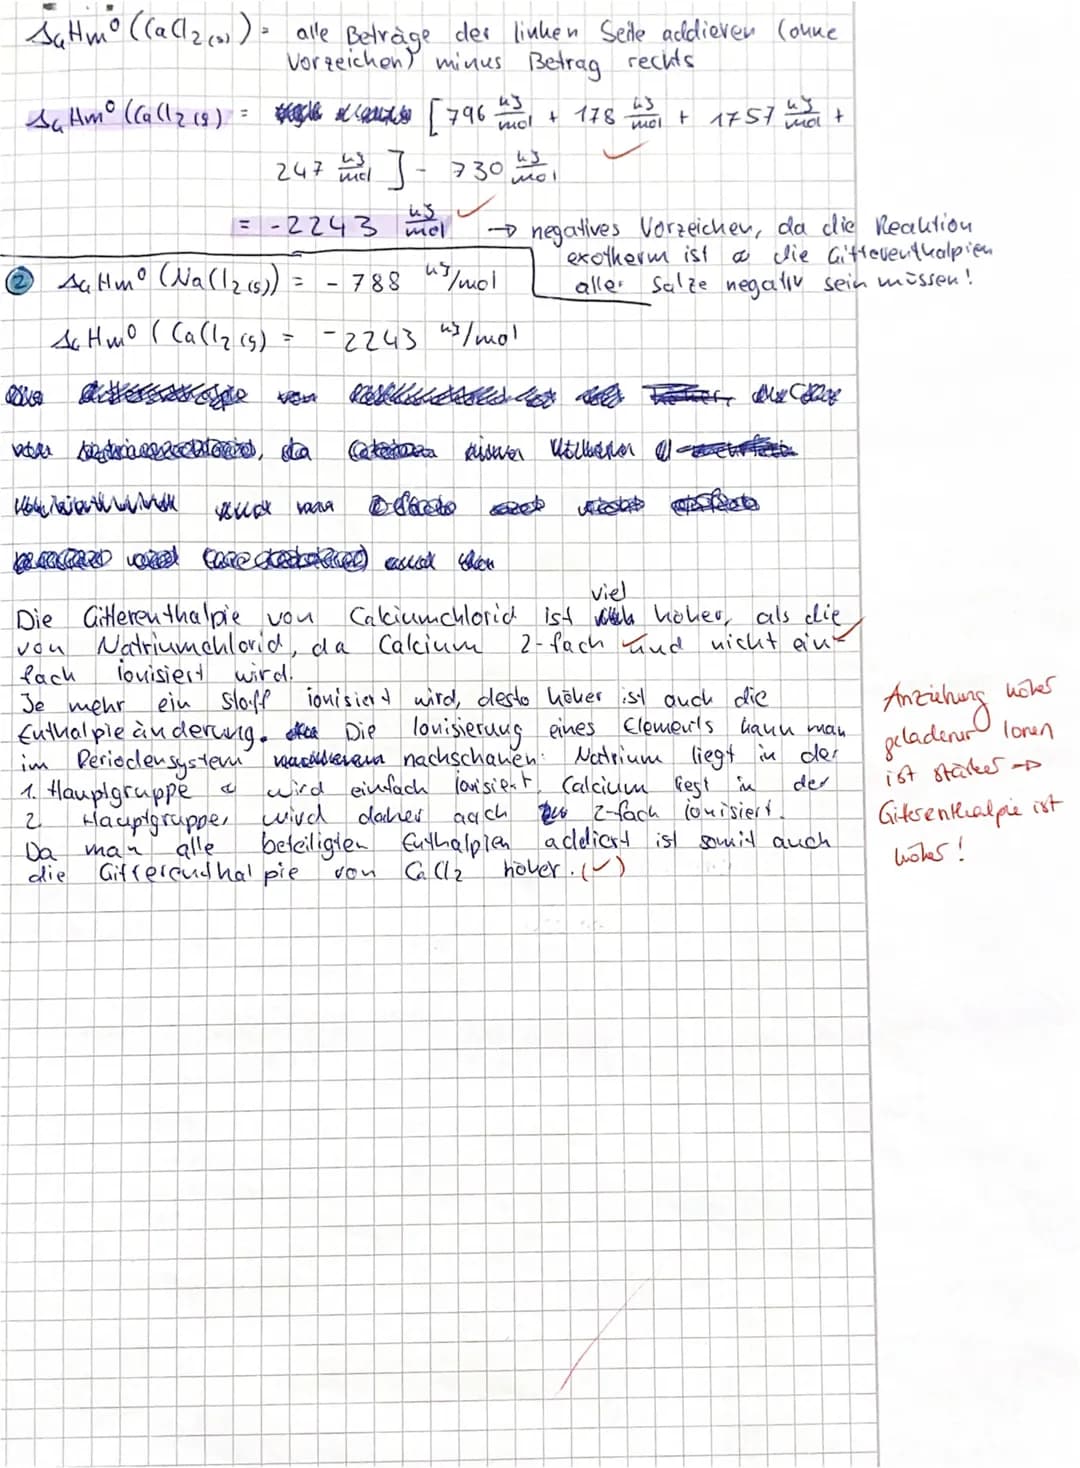 ΔGHm⁰ (CaCl₂(s)) = alle Beträge der linken Seite addieren (ohne
Vorzeichen) minus Betrag rechts
ΔGHm⁰ (CaCl₂(s) = [796 kJ/mol + 178 kJ/mol + 1757 kJ/mol +
247 kJ/mol ] - 730 kJ/mol
= -2243 kJ/mol → negatives Vorzeichen, da die Reaktion
exotherm ist & die Gitterenthalpien
aller Salze negativ sein müssen!
② ΔGHm⁰ (NaCl₂(s)) = - 788 kJ/mol
ΔGHm⁰ (CaCl₂(s) = -2243 kJ/mol
viel
Die Gitterenthalpie von Calciumchlorid ist höher, als die
von Natriumchlorid, da Calcium 2-fach und nicht ein-
fach ionisiert wird.
Je mehr ein Stoff ionisiert wird, desto höher ist auch die
Enthalpieänderung. Die Ionisierung eines Elements kann man
im Periodensystem nachschauen: Natrium liegt in der
1. Hauptgruppe & wird einfach ionisiert, Calcium liegt in der
2. Hauptgruppe, wird daher auch 2-fach ionisiert.
Da man alle beteiligten Enthalpien addiert ist somit auch
die Gitterenthalpie von CaCl₂ höher. (✓)
Anziehung höher
geladener Ionen
ist stärker →
Gitterenthalpie ist
höher!